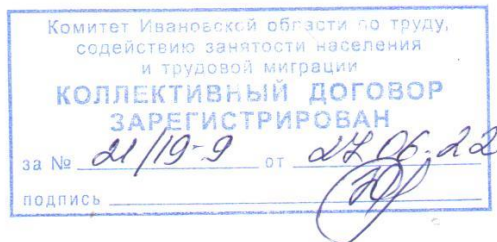 Комитет Ивановской области по труду,
содействию занятости населения
и трудовой миграции
КОЛЛЕКТИВНЫЙ ДОГОВОР
ЗАРЕГИСТРИРОВАН
за № 21/19-9 от 27.06.22
подпись